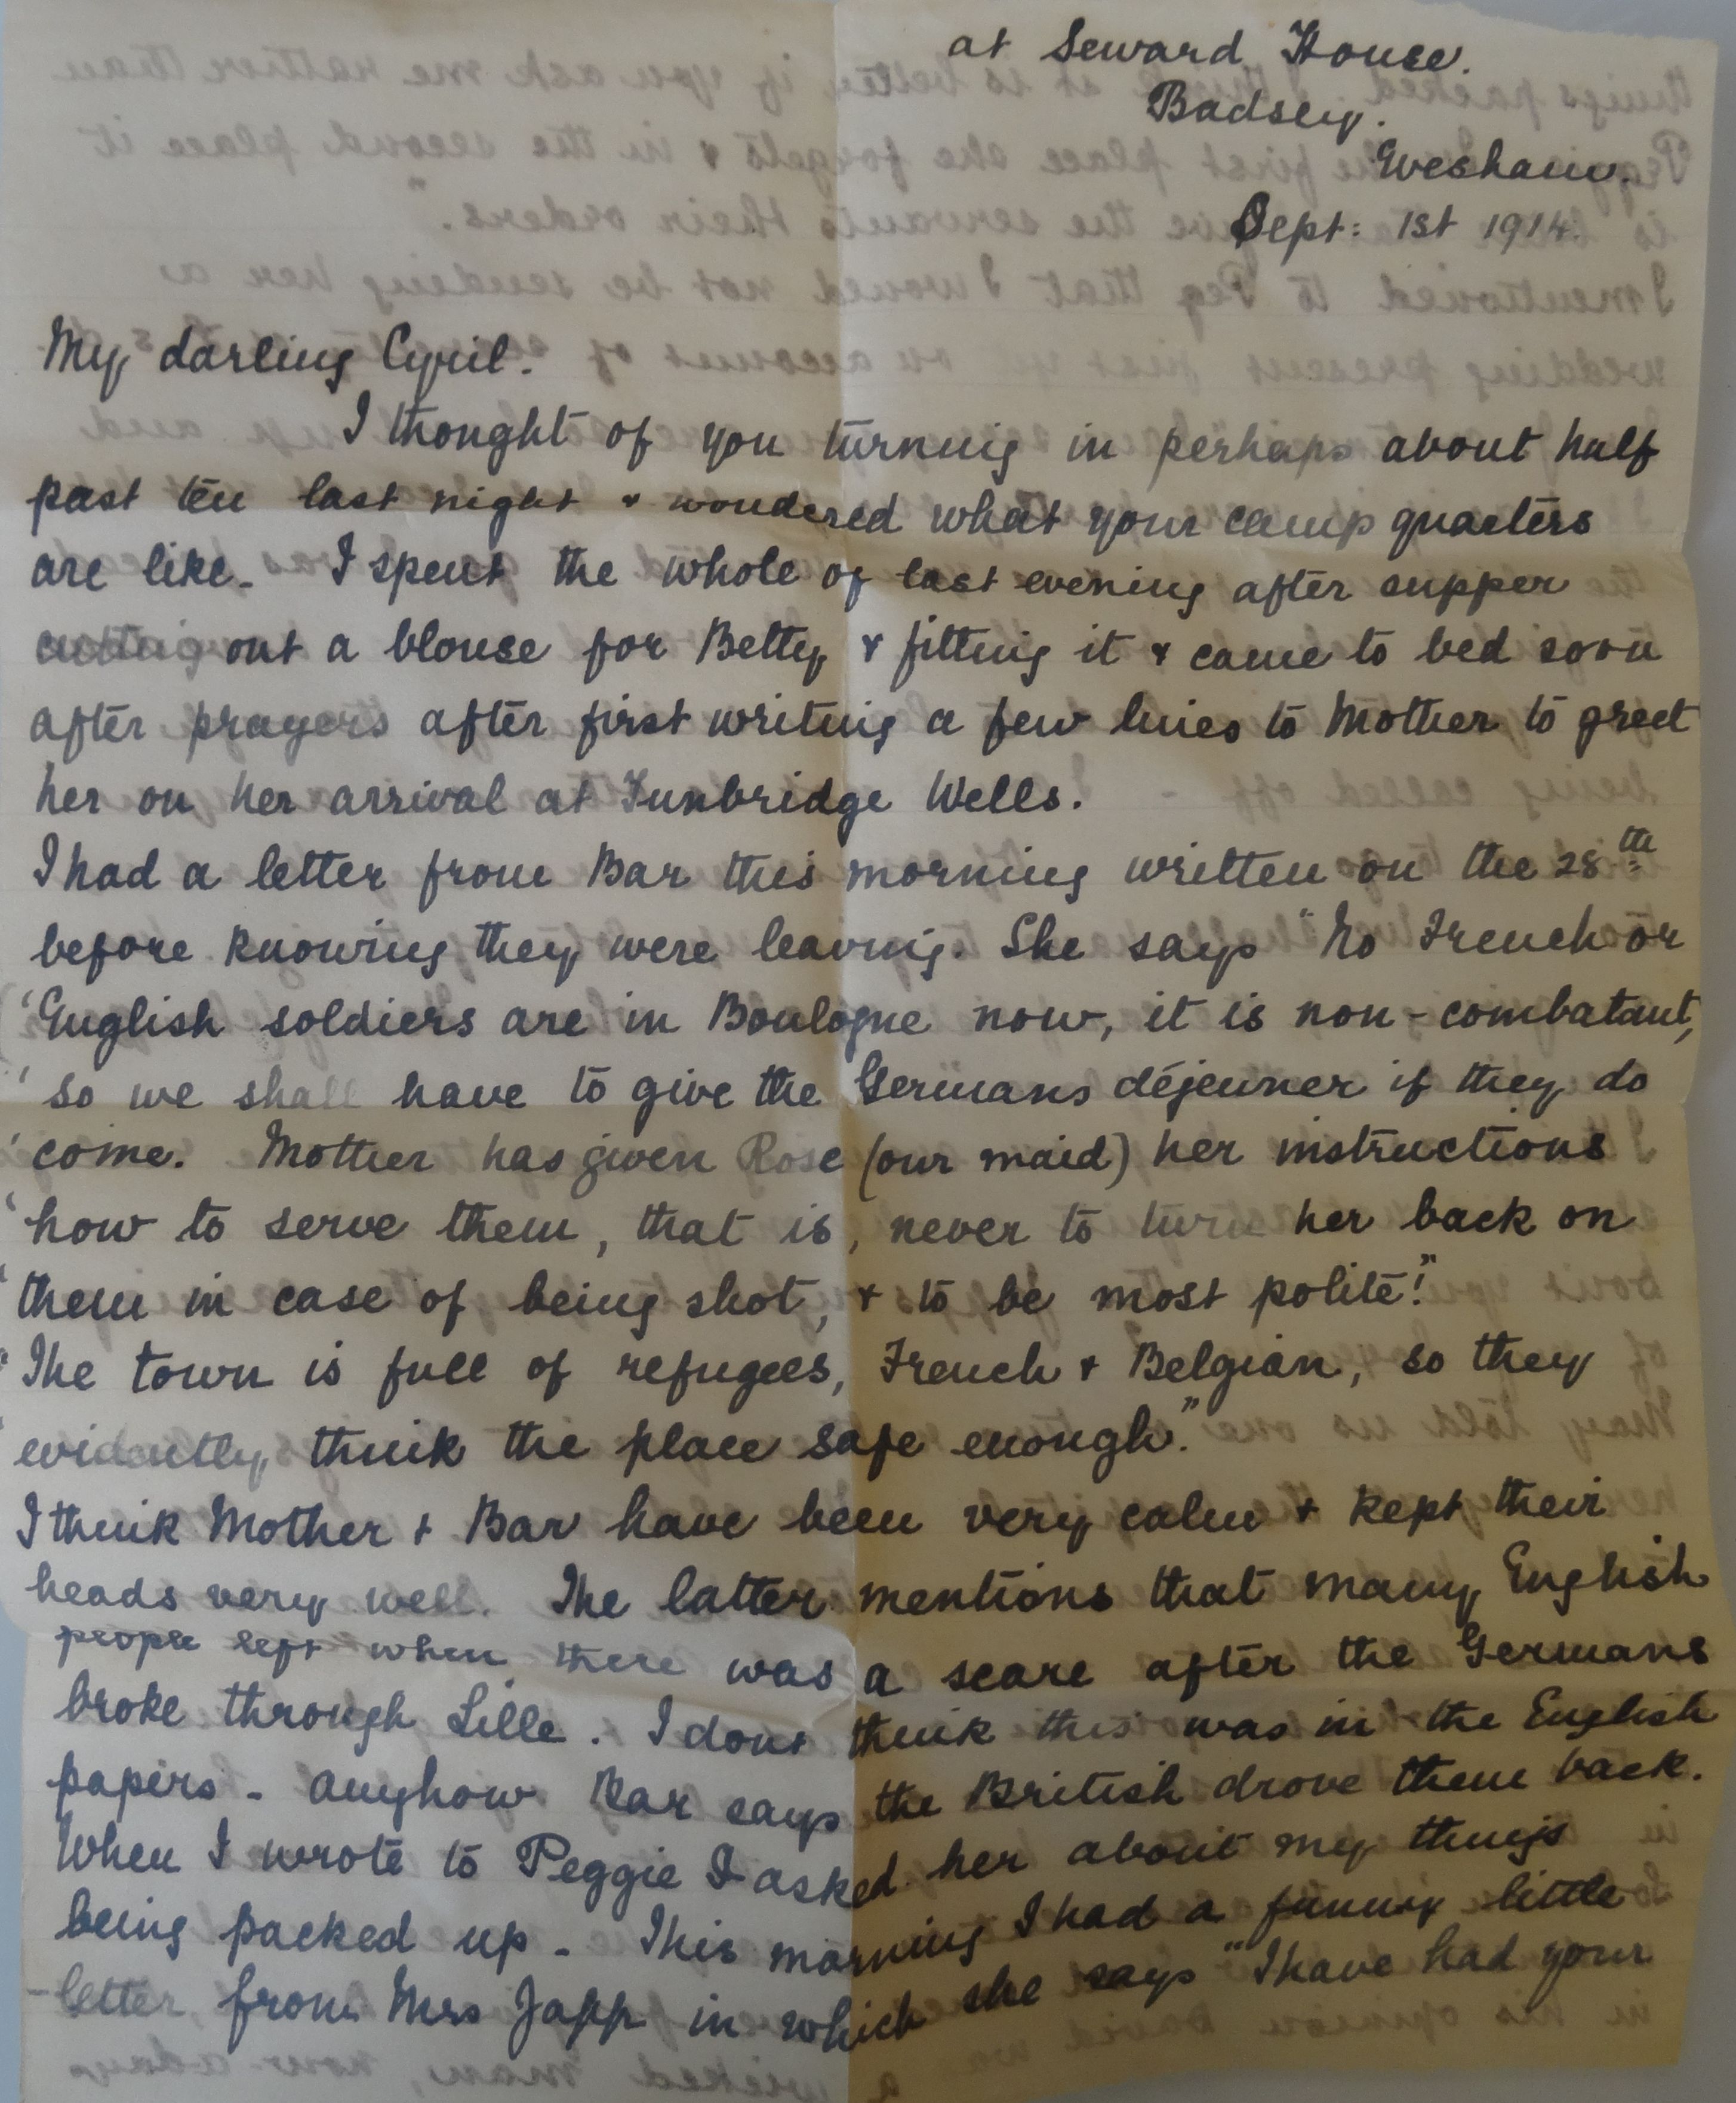 at Seward House.
Badsey.
Evesham.
Sept: 1st 1914.
My darling Cyril.
I thought of you turning in perhaps about half
past ten last night & wondered what your camp quarters
are like. I spent the whole of last evening after supper
cutting out a blouse for Betty & fitting it & came to bed soon
after prayers after first writing a few lines to Mother to greet
her on her arrival at Tunbridge Wells.
I had a letter from Bar this morning written on the 28th
before knowing they were leaving. She says "No French or
'English soldiers are in Boulogne now, it is non-combatant,
'so we shall have to give the Germans déjeuner if they do
'come. Mother has given Rose (our maid) her instructions
'how to serve them, that is, never to turn her back on
'them in case of being shot, & to be most polite!"
"The town is full of refugees, French & Belgian, so they
evidently think the place safe enough."
I think Mother & Bar have been very calm & kept their
heads very well. The latter mentions that many English
people left when there was a scare after the Germans
broke through Lille. I dont think this was in the English
papers - anyhow Bar says the British drove them back.
When I wrote to Peggie I asked her about my things
being packed up - This morning I had a funny little
letter from Mrs Japp in which she says "I have had your